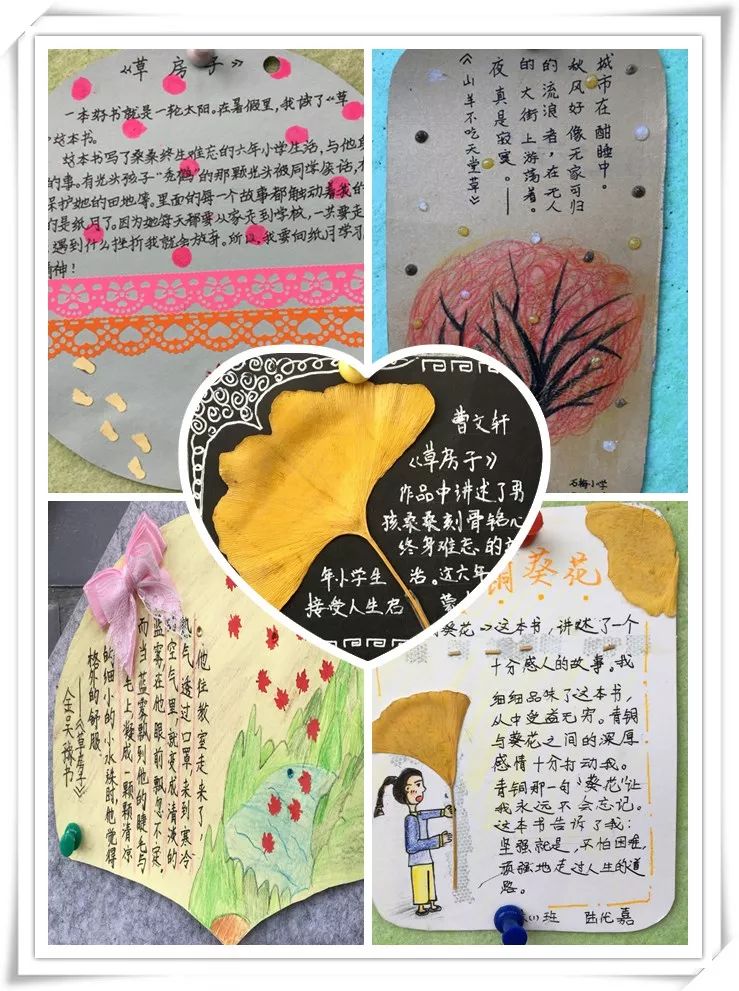 《草房子》
一本好书就是一轮太阳。在暑假里，我读了《草
这本书。
这本书写了桑桑终生难忘的六年小学生活，与他
的事。有光头孩子“秃鹤”的那颗光头被同学侮话，
保护她的田地等。里面的每一个故事都触动着我的
的是纸月了。因为她每天都要从家走到学校，一共要走
遇到什么挫折我就会放弃。所以，我要向纸月学习
精神！
城市在酣睡中。
秋风好像无家可归
的流浪者，在无人
的大街上游荡着。
夜真是寂寞。——
《山羊不吃天堂草》
石梅小学
曹文轩
《草房子》
作品中讲述了男
孩桑桑刻骨铭心
终身难忘的
年小学生
治。这六年
接受人生启
蒙
他往教室走来了，
热气透过口罩，来到寒冷
的空气里，就变成清淡的
蓝雾在他眼前飘忽不定。
而当蓝雾飘到他的睫毛与
毛上凝成一颗颗清凉
的细小的小水珠时他觉得
格外的舒服
——《草房子》
铜葵花
葵花》这本书，讲述了一个
十分感人的故事。我
细细品味了这本书，
从中受益无穷。青铜
与葵花之间的深厚
感情十分打动我。
青铜那一句“葵花”让
我永远不会忘记。
这本书告诉了我：
坚强就是，不怕困难，
顽强地走过人生的道
路。
班 陆优嘉